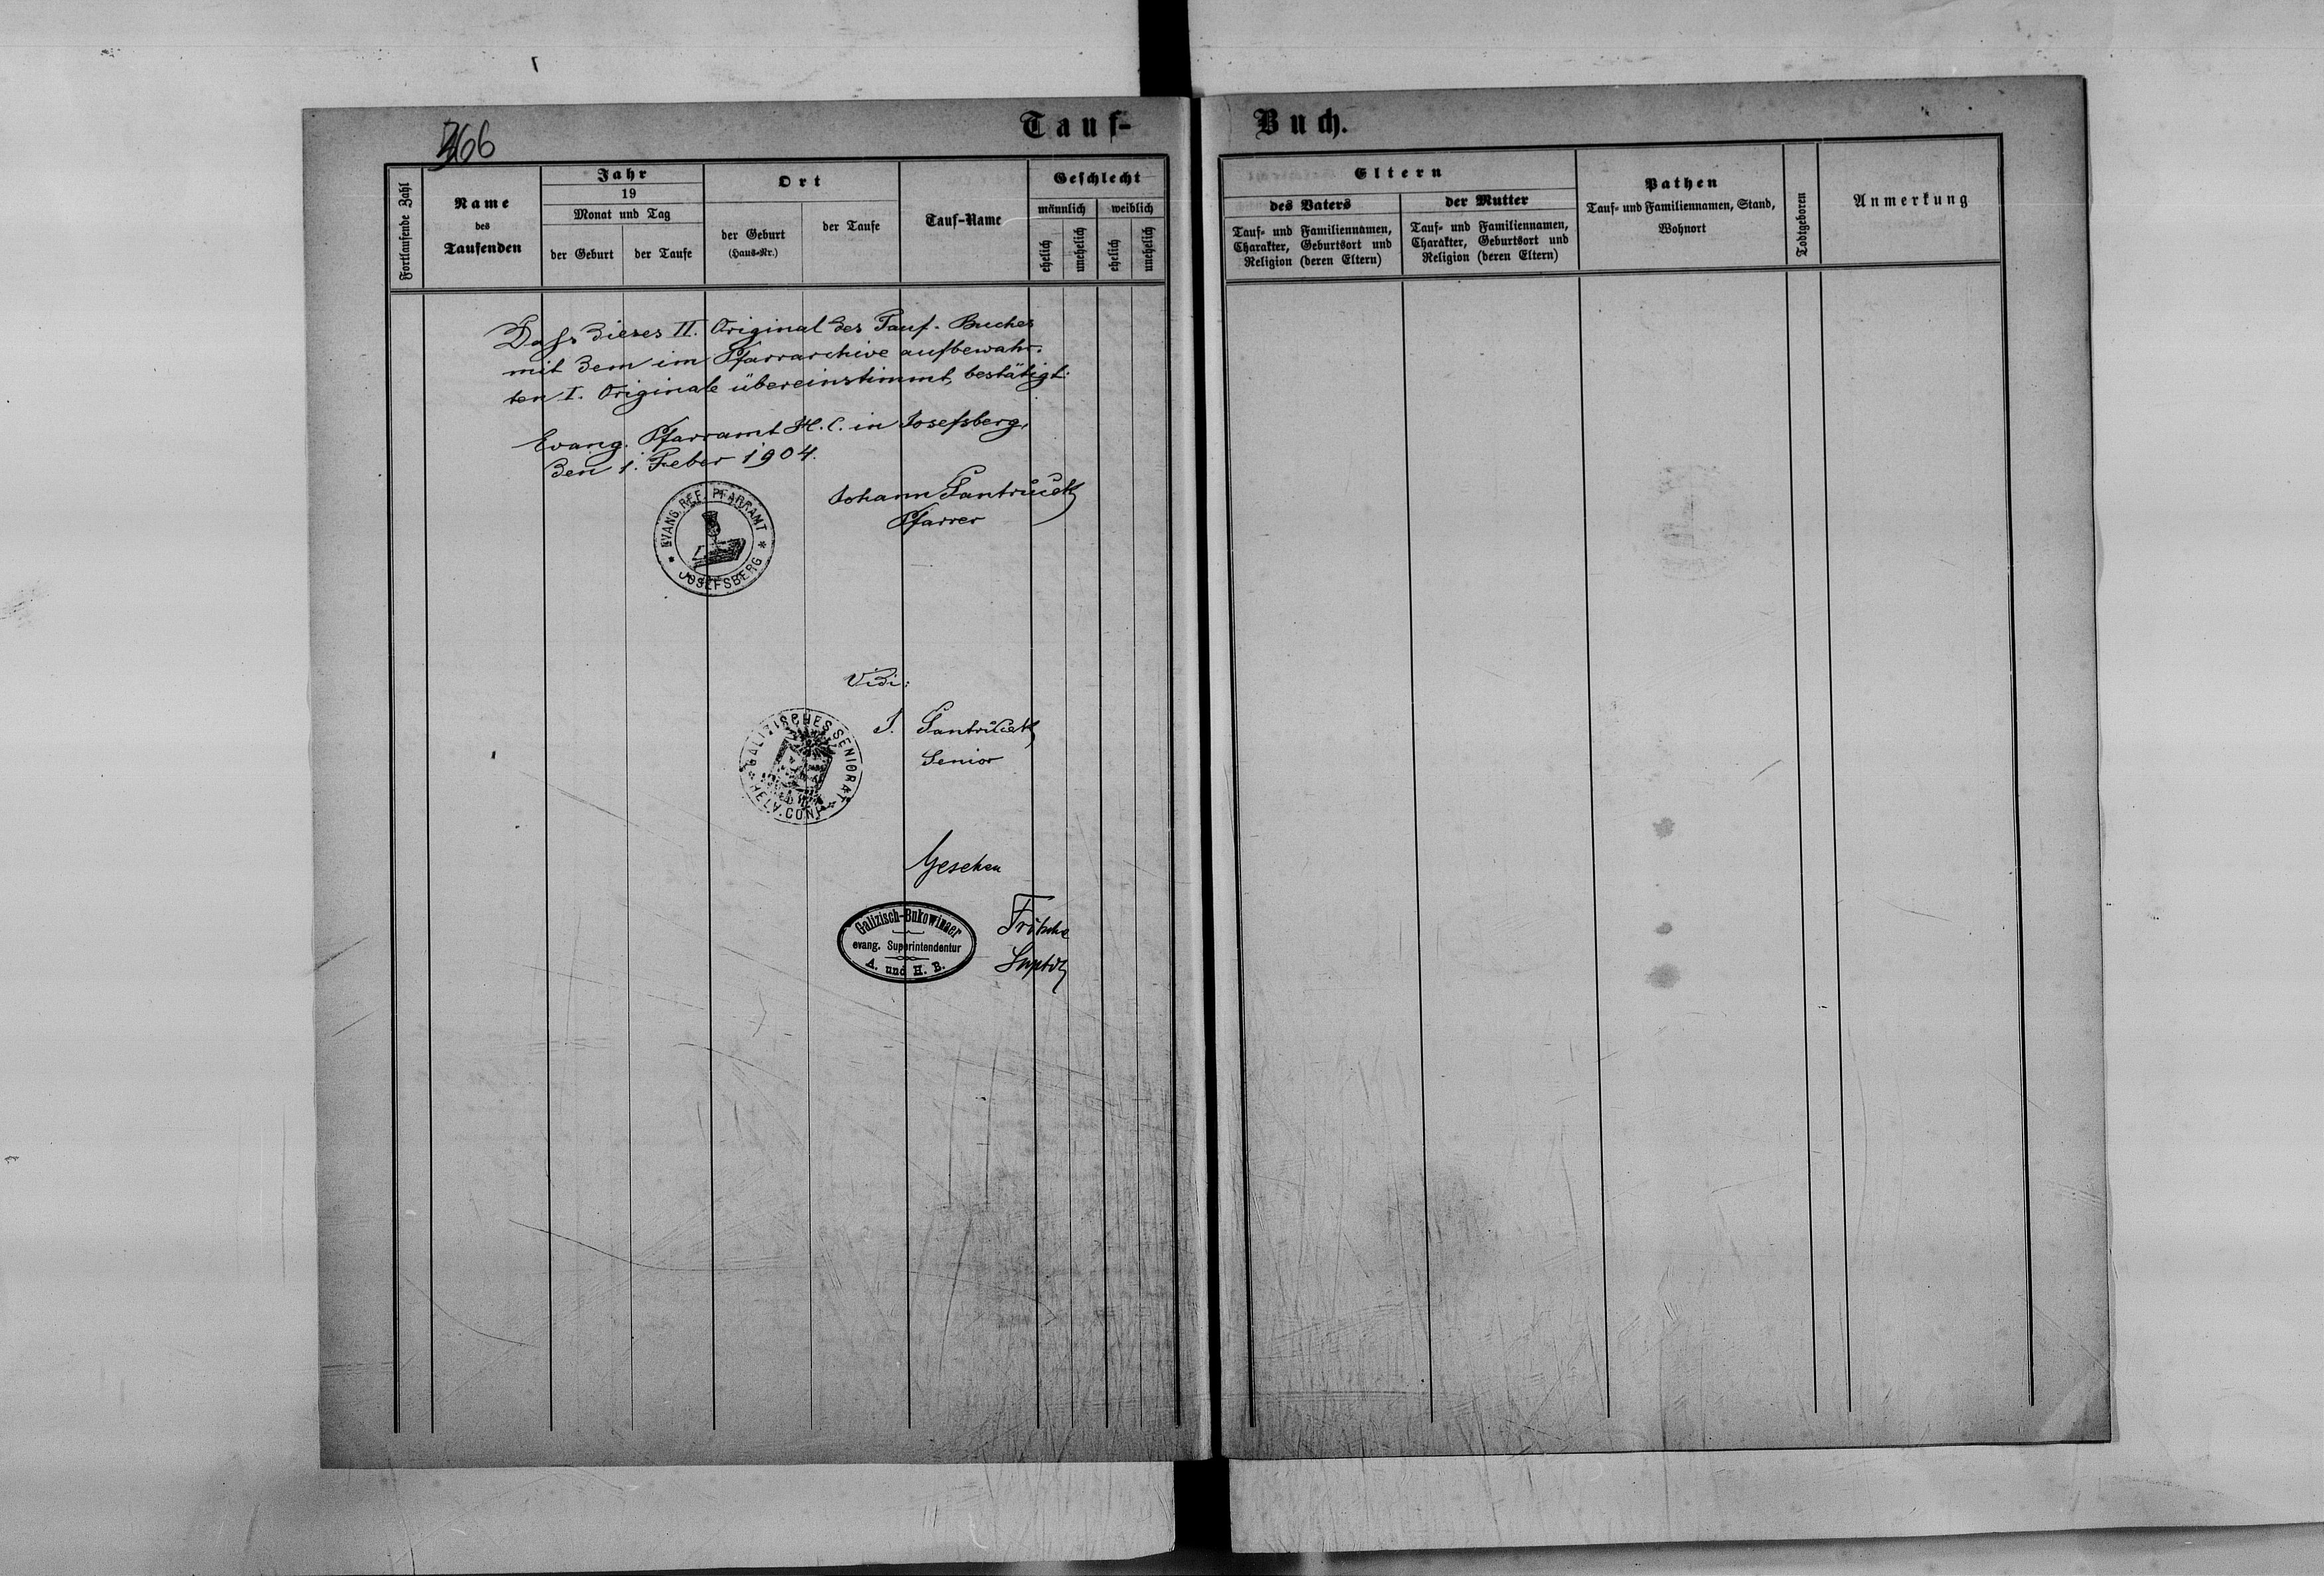 366
Tauf-
Buch.
Fortlaufende Zahl
Name
des
Taufenden
Jahr
19
Monat und Tag
der Geburt
der Taufe
Ort
der Geburt
(Haus-Nr.)
der Taufe
Tauf-Name
Geschlecht
männlich
weiblich
ehelich
unehelich
ehelich
unehelich
Eltern
des Vaters
Tauf- und Familiennamen,
Charakter, Geburtsort und
Religion (deren Eltern)
der Mutter
Tauf- und Familiennamen,
Charakter, Geburtsort und
Religion (deren Eltern)
Pathen
Tauf- und Familiennamen, Stand,
Wohnort
Todtgeboren
Anmerkung
Dass dieses II. Original des Tauf-Buches
mit dem im Pfarrarchive aufbewahr-
ten I. Originale übereinstimmt, bestätigt:
Evang. Pfarramt H. C. in Josefsberg,
den 1. Feber 1904.
EVANG. REF. PFARRAMT
* JOSEFSBERG *
Johann Fantrůček
Pfarrer
Vidi:
GALIZISCHES SENIORAT
HELV. CONF.
J. Fantrůček
Senior
Gesehen
Galizisch-Bukowinaer
evang. Superintendentur
A. und H. B.
Fritsche
Suptdt